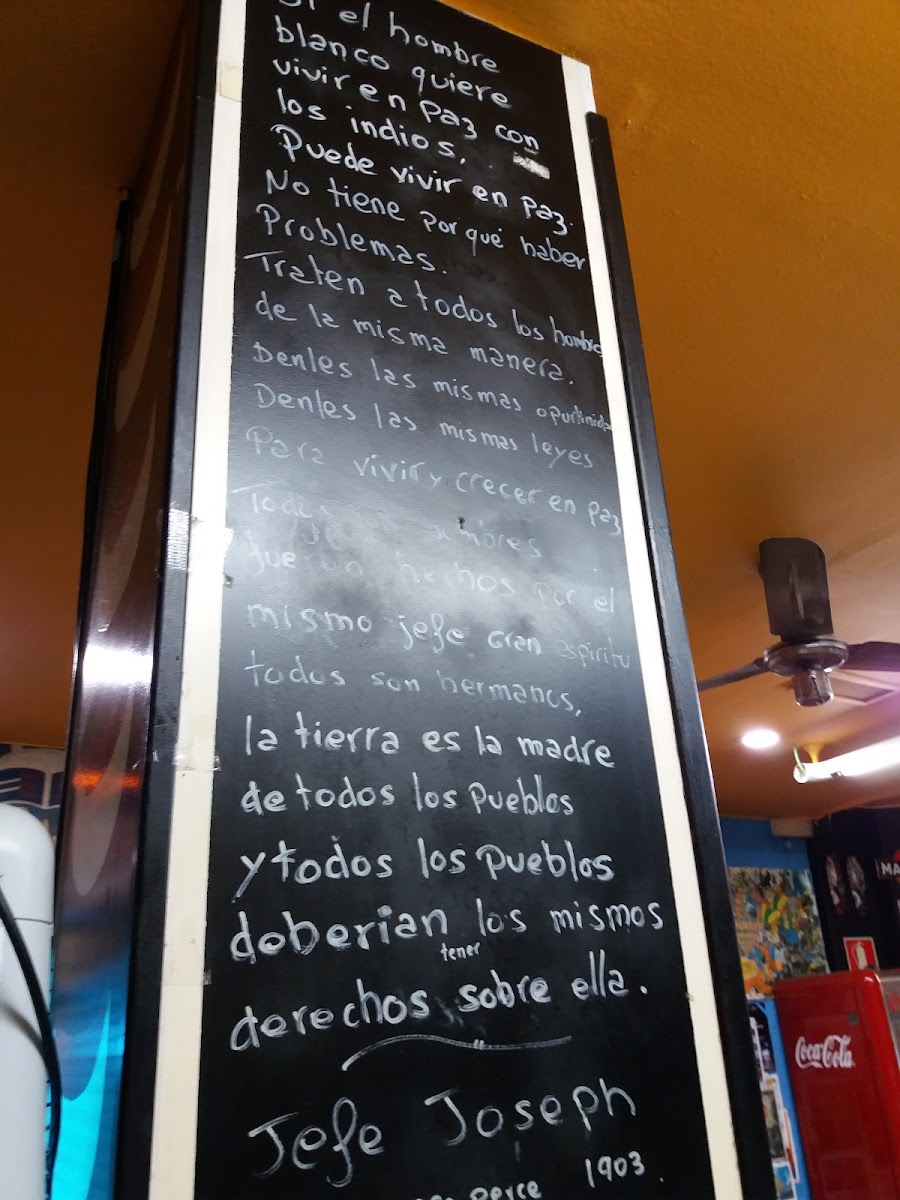 Si el hombre
blanco quiere
vivir en paz con
los indios,
Puede vivir en paz.
No tiene por qué haber
Problemas.
Traten a todos los hombre
de la misma manera.
Denles las mismas
Denles las mismas leyes
Para vivir y crecer en paz
fueron hechos por el
mismo jefe Gran espiritu
todos son hermanos,
la tierra es la madre
de todos los pueblos
y todos los pueblos
deberian los mismos
tener
derechos sobre ella.
Jefe Joseph
perce 1903.
Coca-Cola
MA